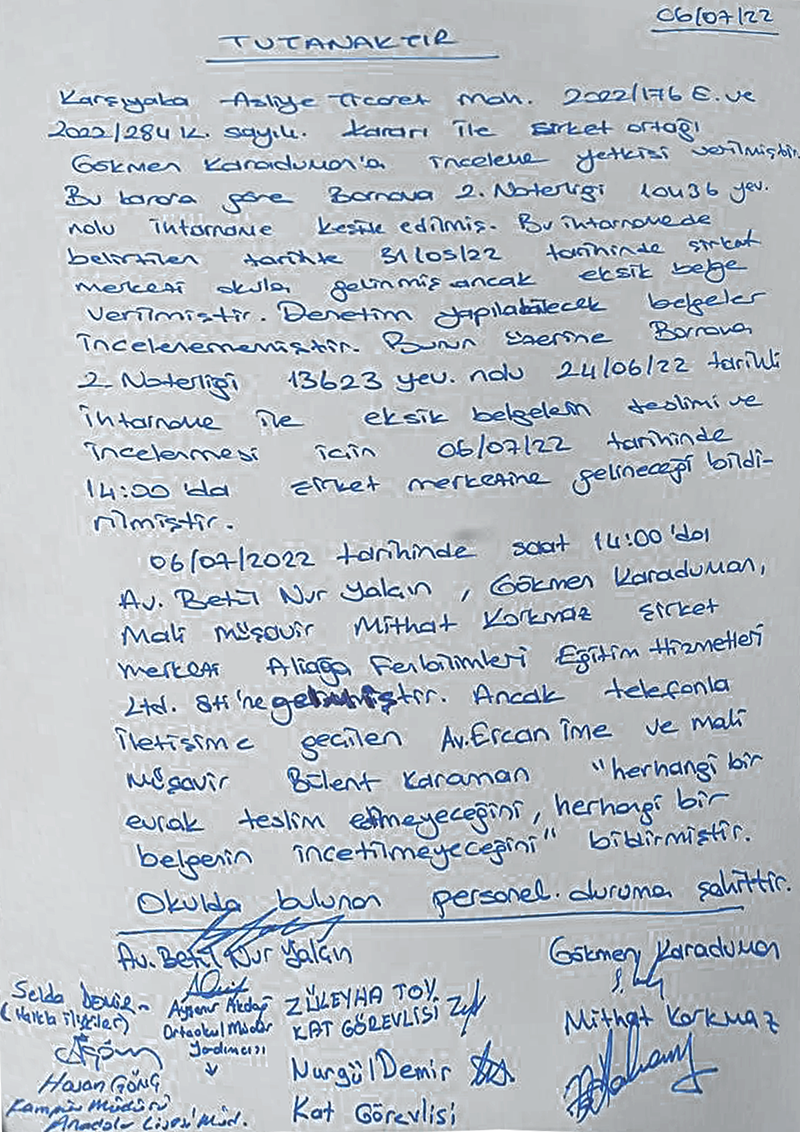 06/07/22
TUTANAKTIR
Karşıyaka Asliye Ticaret Mah. 2022/176 E. ve
2022/284 K. sayılı kararı ile şirket ortağı
Gökmen Karaduman'a inceleme yetkisi verilmiştir.
Bu karara göre Bornova 2. Noterliği 10436 yev.
nolu ihtarname keşide edilmiş. Bu ihtarnamede
belirtilen tarihte 31/05/22 tarihinde şirket
merkezi okula gelinmiş ancak eksik belge
verilmiştir. Denetim yapılabilecek belgeler
incelenememiştir. Bunun üzerine Bornova
2. Noterliği 13623 yev. nolu 24/06/22 tarihli
ihtarname ile eksik belgelerin teslimi ve
incelenmesi için 06/07/22 tarihinde
14:00'da şirket merkezine gelineceği bildi-
rilmiştir.
06/07/2022 tarihinde saat 14:00'da
Av. Betül Nur Yalçın, Gökmen Karaduman,
Mali müşavir Mithat Korkmaz şirket
merkezi Aliağa Fenbilimleri Eğitim Hizmetleri
Ltd. Şti'ne gelinmiştir. Ancak telefonla
iletişime geçilen Av. Ercan İme ve mali
müşavir Bülent Karaman "herhangi bir
evrak teslim etmeyeceğini, herhangi bir
belgenin incetilmeyeceğini" bildirmiştir.
Okulda bulunan personel duruma şahittir.
Av. Betül Nur Yalçın
Gökmen Karaduman
Selda Demir
(Halkla İlişkiler)
Ayşenur Akdağ
Ortaokul Müdür
Yardımcısı
ZÜLEYHA TOY
KAT GÖREVLİSİ
Mithat Korkmaz
Hasan GÖNÇ
Kampüs Müdürü
Anadolu Lisesi Müd.
Nurgül Demir
Kat Görevlisi